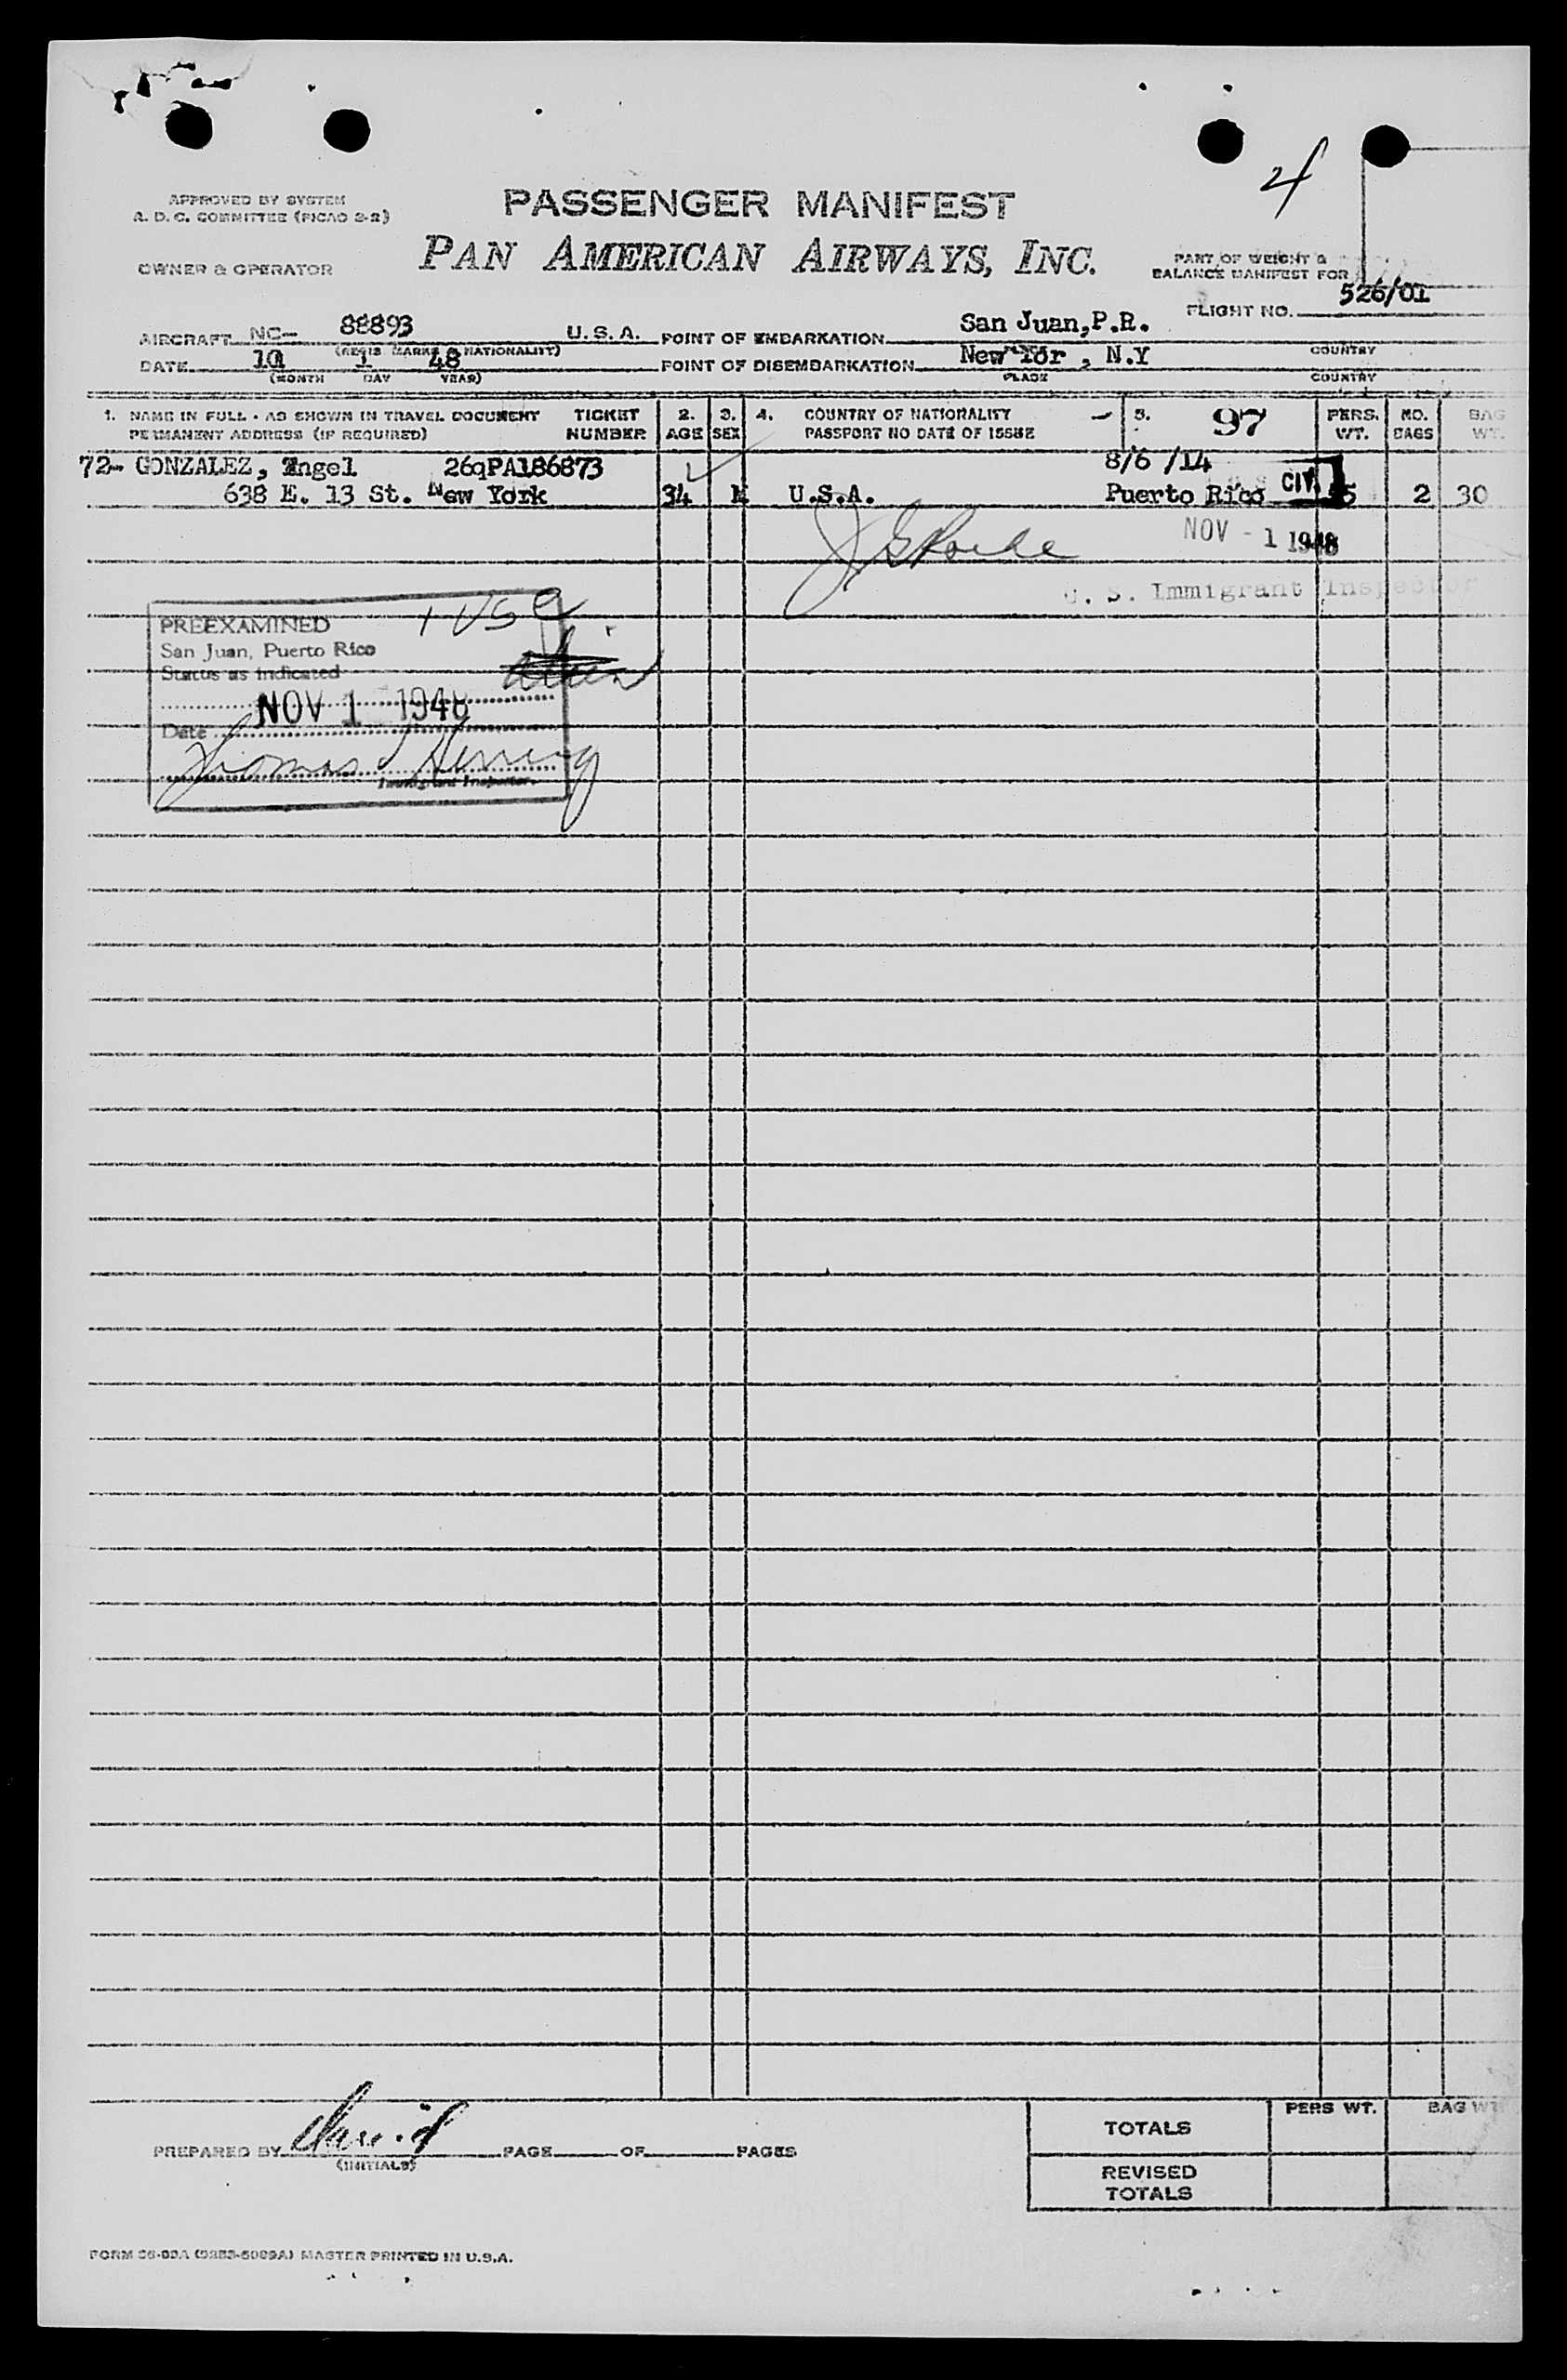 4
APPROVED BY SYSTEM
A. D. C. COMMITTEE (PICAO 2-2)
PASSENGER MANIFEST
PAN AMERICAN AIRWAYS, INC.
OWNER & OPERATOR
PART OF WEIGHT &
BALANCE MANIFEST FOR
FLIGHT NO. 526/01
AIRCRAFT NC- 88893 U.S.A. POINT OF EMBARKATION San Juan,P.R.
(REGIS MARKS NATIONALITY) COUNTRY
DATE 1 48 POINT OF DISEMBARKATION New Yor , N.Y
(MONTH DAY YEAR) PLACE COUNTRY
1. NAME IN FULL - AS SHOWN IN TRAVEL DOCUMENT TICKET 2. 3. 4. COUNTRY OF NATIONALITY - 5. 97 PERS. NO. BAG
PERMANENT ADDRESS (IF REQUIRED) NUMBER AGE SEX PASSPORT NO DATE OF ISSUE WT. BAGS WT.
72- GONZALEZ, Angel 26qPA186873 8/6 /14
638 E. 13 St. New York 34 M U.S.A. Puerto Rico CIV. 2 30
NOV - 1 1948
U. S. Immigrant Inspector
PREEXAMINED 1 USC
San Juan, Puerto Rico
Status as indicated
NOV 1 1948
Date
Thomas J Herring
Immigrant Inspector.
PREPARED BY PAGE OF PAGES
(INITIALS)
PERS WT. BAG WT
TOTALS
REVISED
TOTALS
MASTER PRINTED IN U.S.A.